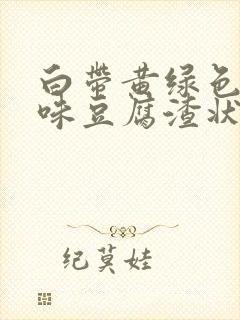 白带黄绿色
味豆腐渣状
纪莫娃